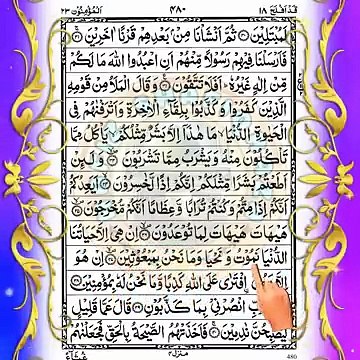 قد افلح ١٨
٤٨٠
المؤمنون ٢٣
لَمُبْتَلِيْنَ ۝ ثُمَّ اَنْشَاْنَا مِنْۢ بَعْدِهِمْ قَرْنًا اٰخَرِيْنَ ۝
فَاَرْسَلْنَا فِيْهِمْ رَسُوْلًا مِّنْهُمْ اَنِ اعْبُدُوا اللّٰهَ مَا لَكُمْ
مِّنْ اِلٰهٍ غَيْرُهٗ ؕ اَفَلَا تَتَّقُوْنَ ۝ وَقَالَ الْمَلَاُ مِنْ قَوْمِهِ
الَّذِيْنَ كَفَرُوْا وَكَذَّبُوْا بِلِقَآءِ الْاٰخِرَةِ وَاَتْرَفْنٰهُمْ فِي
الْحَيٰوةِ الدُّنْيَا ۙ مَا هٰذَاۤ اِلَّا بَشَرٌ مِّثْلُكُمْ ۙ يَاْكُلُ مِمَّا
تَاْكُلُوْنَ مِنْهُ وَيَشْرَبُ مِمَّا تَشْرَبُوْنَ ۝ وَلَئِنْ
اَطَعْتُمْ بَشَرًا مِّثْلَكُمْ اِنَّكُمْ اِذًا لَّخٰسِرُوْنَ ۝ اَيَعِدُكُمْ
اَنَّكُمْ اِذَا مِتُّمْ وَكُنْتُمْ تُرَابًا وَّعِظَامًا اَنَّكُمْ مُّخْرَجُوْنَ ۝
هَيْهَاتَ هَيْهَاتَ لِمَا تُوْعَدُوْنَ ۝ اِنْ هِيَ اِلَّا حَيَاتُنَا
الدُّنْيَا نَمُوْتُ وَنَحْيَا وَمَا نَحْنُ بِمَبْعُوْثِيْنَ ۝ اِنْ هُوَ
اِلَّا رَجُلُ اۨفْتَرٰى عَلَى اللّٰهِ كَذِبًا وَّمَا نَحْنُ لَهٗ بِمُؤْمِنِيْنَ ۝
رَبِّ انْصُرْنِيْ بِمَا كَذَّبُوْنِ ۝ قَالَ عَمَّا قَلِيْلٍ
لَّيُصْبِحُنَّ نٰدِمِيْنَ ۝ فَاَخَذَتْهُمُ الصَّيْحَةُ بِالْحَقِّ فَجَعَلْنٰهُمْ
منزل ٤
480